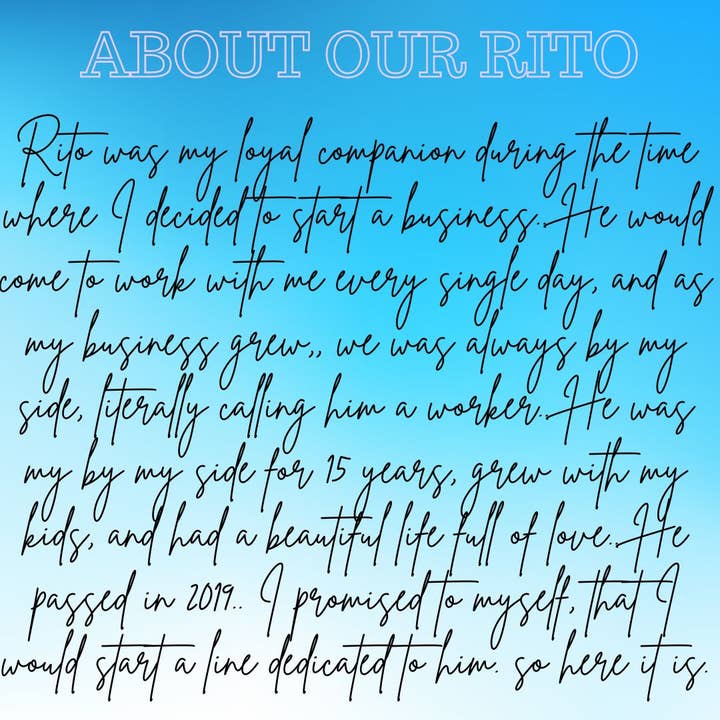 ABOUT OUR RITO
Rito was my loyal companion during the time
where I decided to start a business..He would
come to work with me every single day, and as
my business grew,, we was always by my
side, literally calling him a worker..He was
my by my side for 15 years, grew with my
kids, and had a beautiful life full of love..He
passed in 2019.. I promised to myself, that I
would start a line dedicated to him. so here it is.